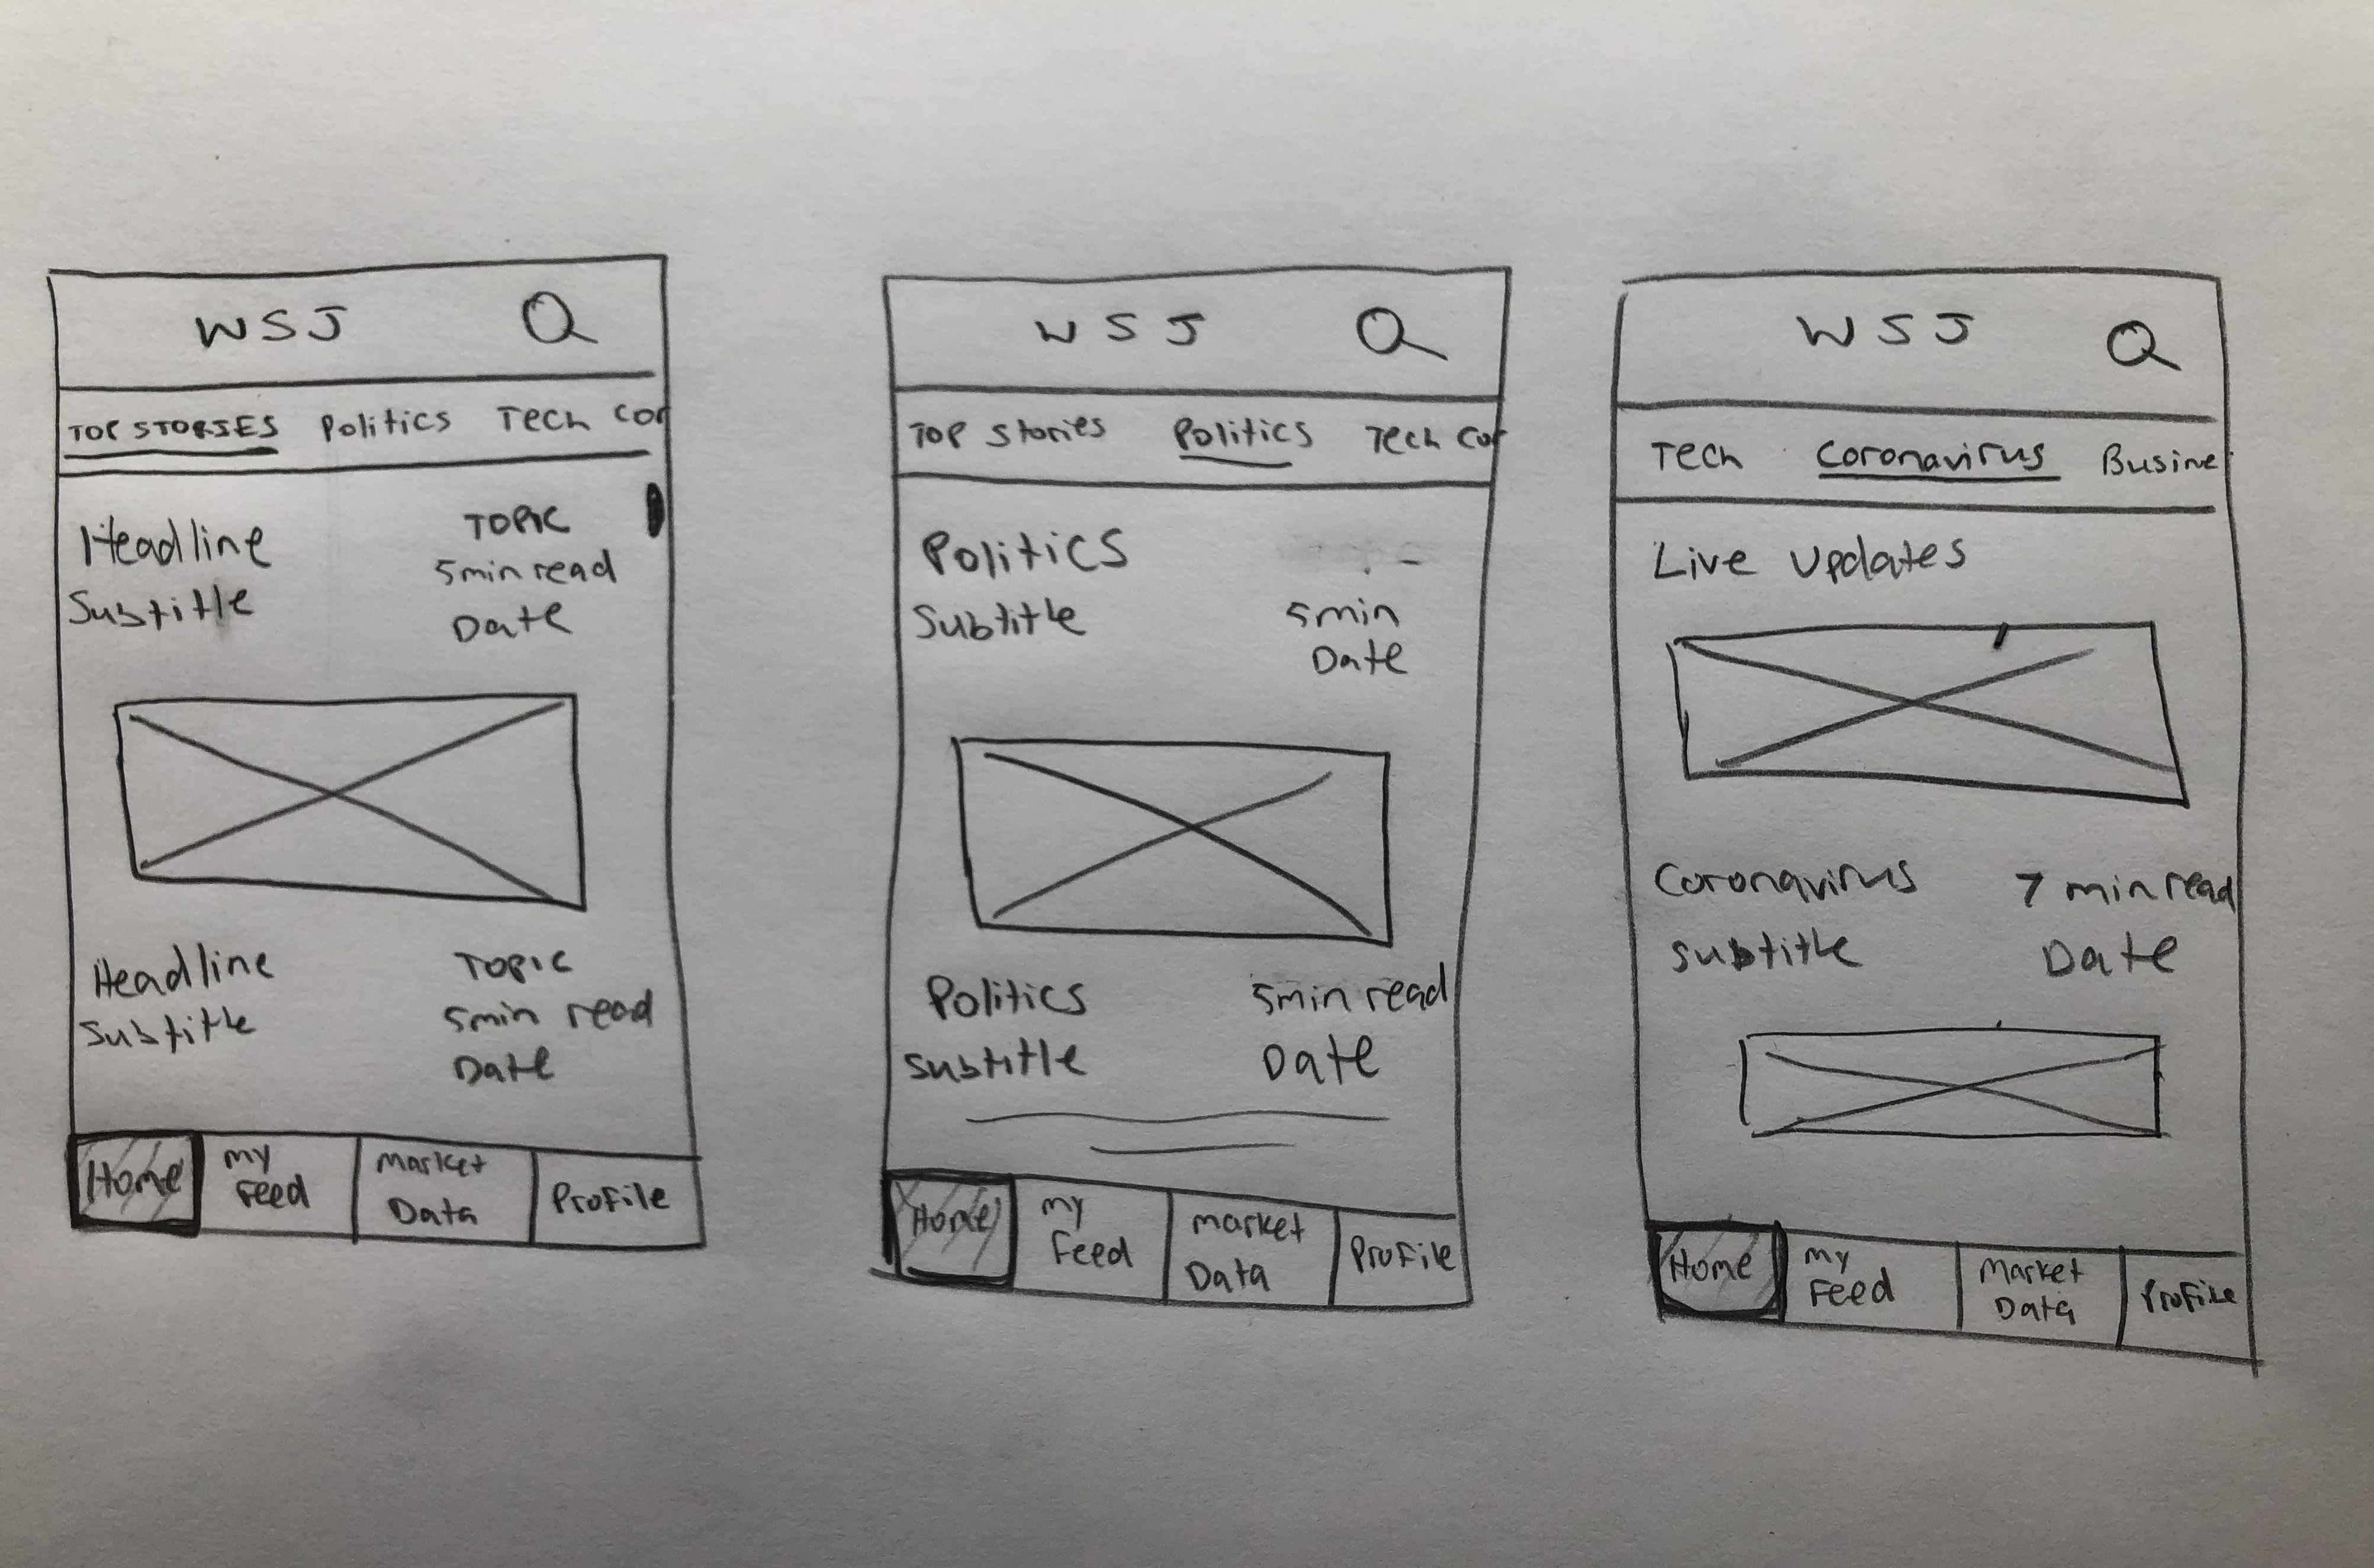 WSJ
TOP STORIES Politics Tech Cor
Headline TOPIC
Subtitle 5min read
Date
Headline TOPIC
Subtitle 5min read
Date
Home My Feed Market Data Profile
WSJ
TOP Stories Politics Tech Cor
Politics
Subtitle 5min
Date
Politics 5min read
Subtitle Date
Home My Feed Market Data Profile
WSJ
Tech Coronavirus Busine
Live Updates
Coronavirus 7 min read
Subtitle Date
Home My Feed Market Data Profile